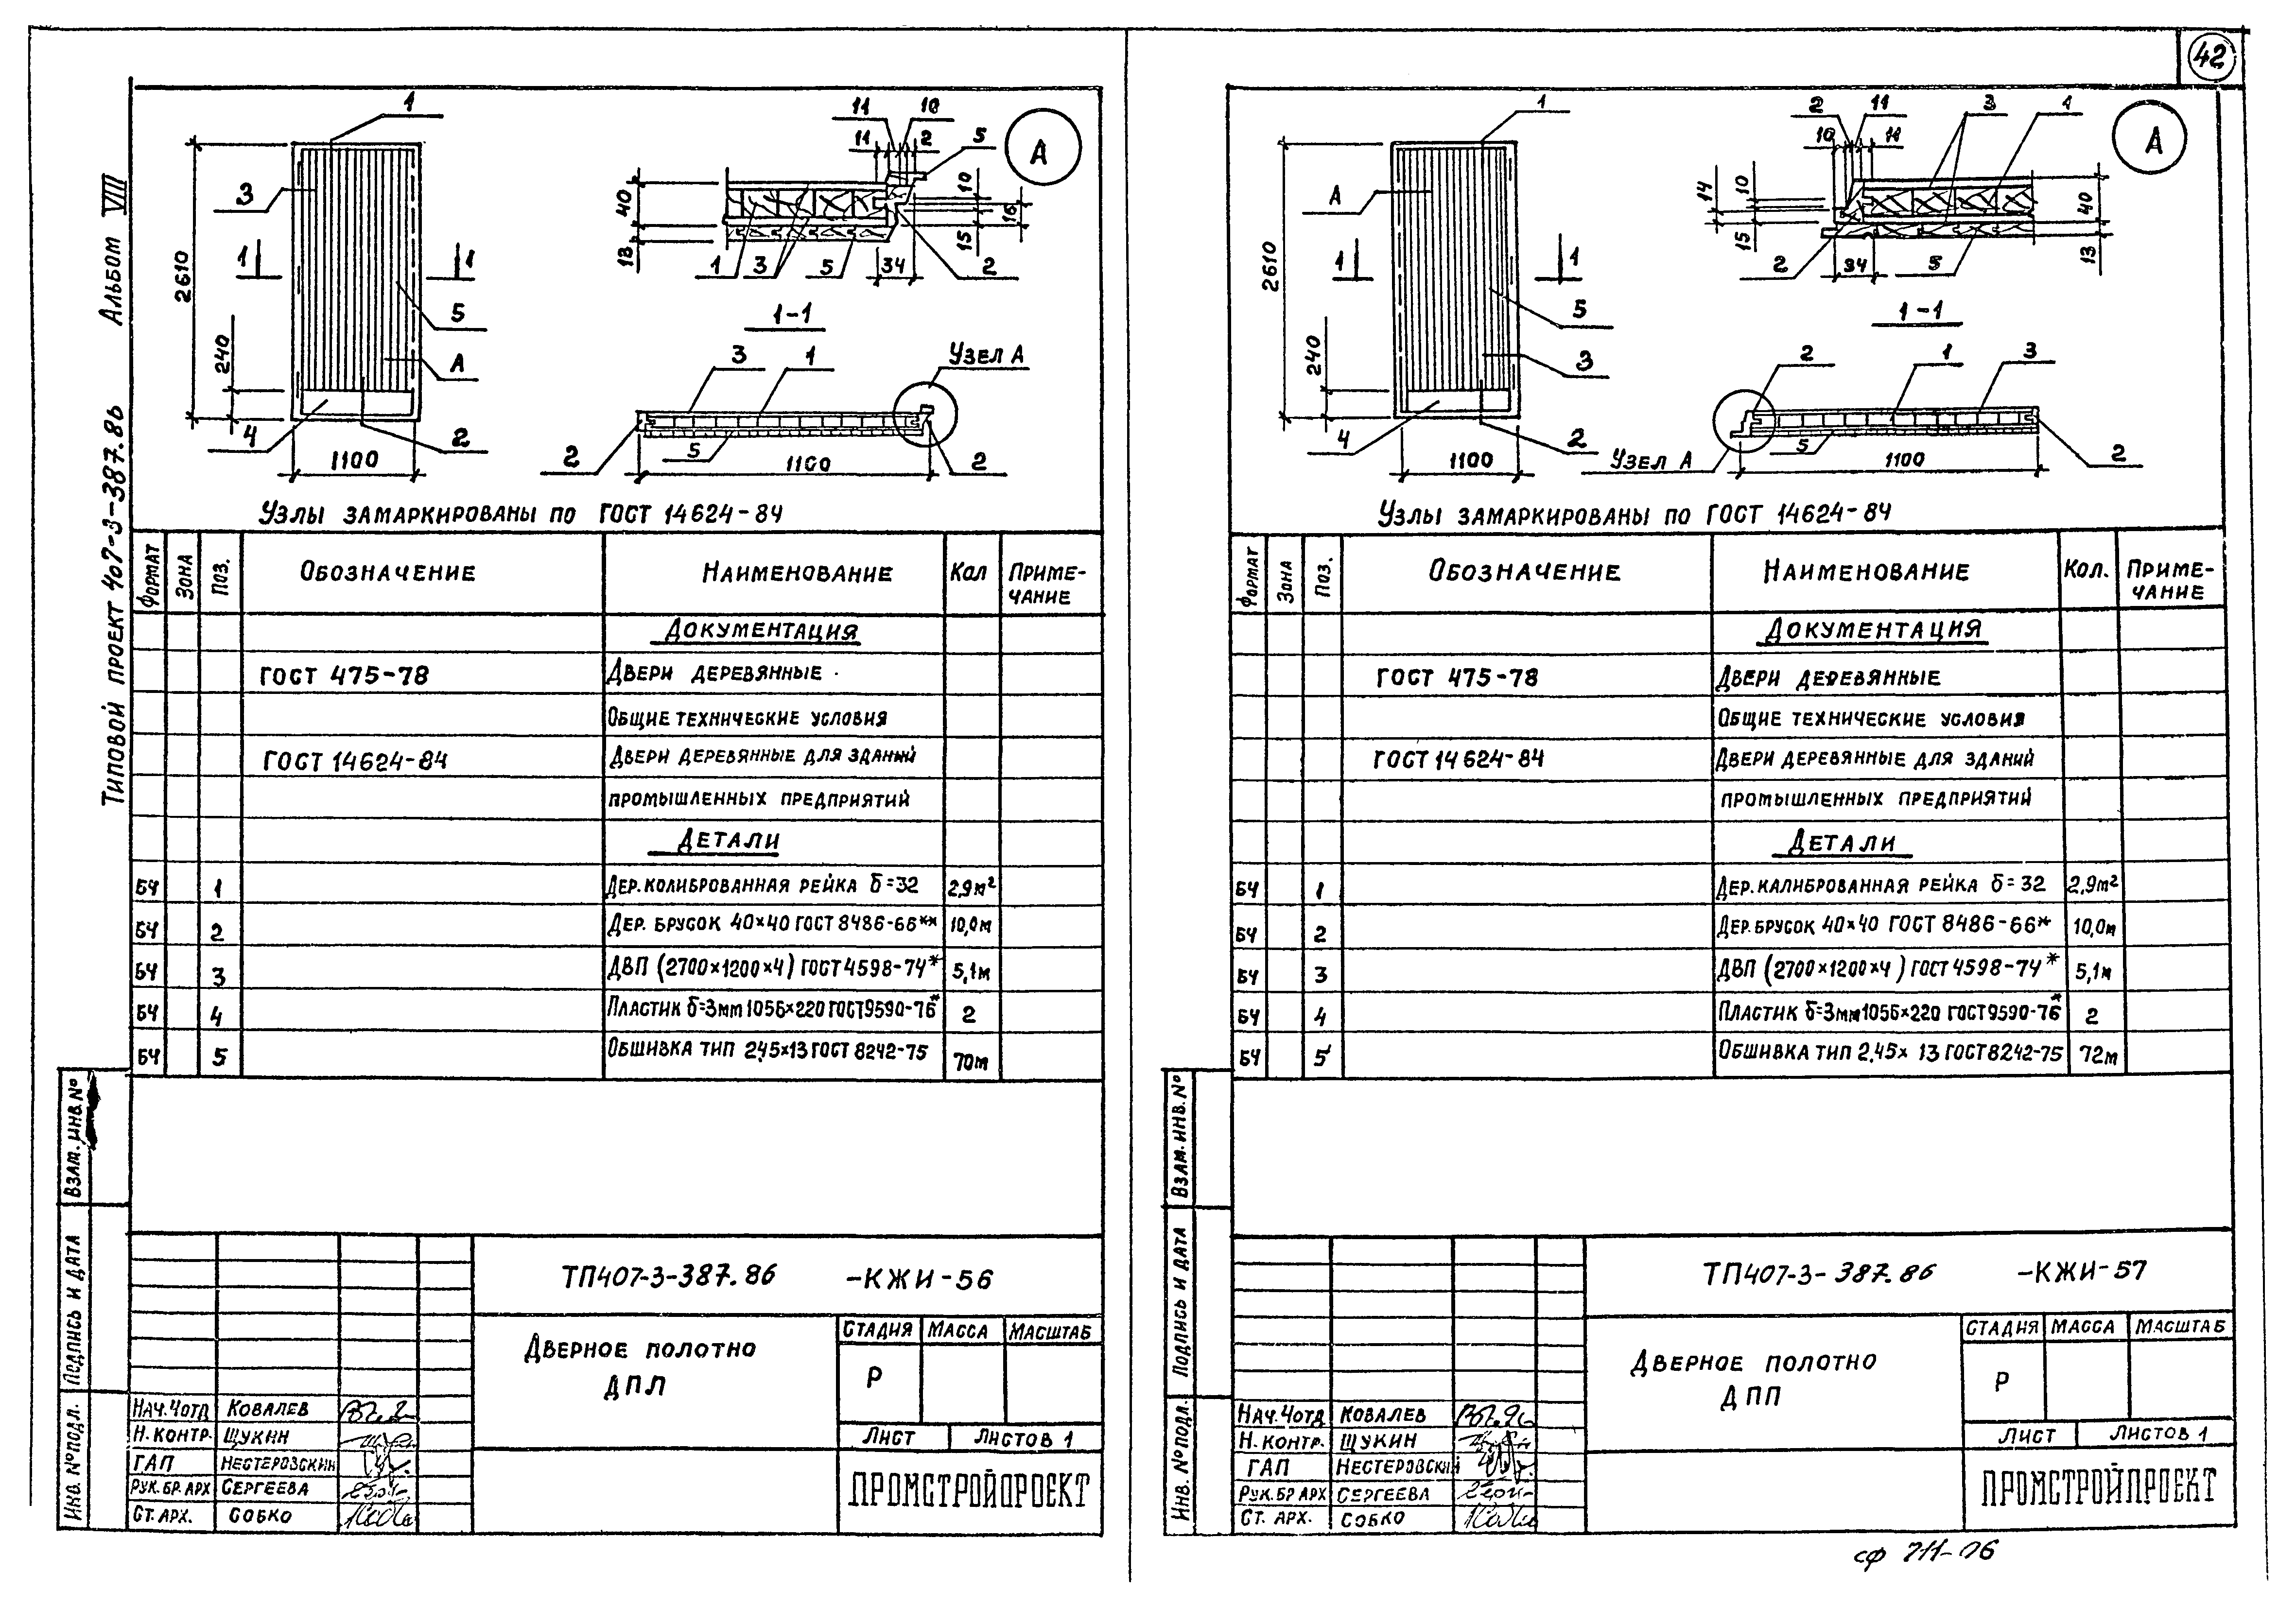 42
Типовой проект 407-3-387.86 Альбом VIII
1
3
1 1
2610
240
5
А
4
2
1100
11 10
11 2
5
А
40
13
10
16
15
1 3 5 34 2
1-1
3 1
Узел А
2 5 1100 2
Узлы замаркированы по ГОСТ 14624-84
Формат Зона Поз. Обозначение Наименование Кол Приме-
чание
Документация
ГОСТ 475-78 Двери деревянные
Общие технические условия
ГОСТ 14624-84 Двери деревянные для зданий
промышленных предприятий
Детали
БЧ 1 Дер. колиброванная рейка δ=32 2,9м²
БЧ 2 Дер. брусок 40×40 ГОСТ 8486-66** 10,0м
БЧ 3 ДВП (2700×1200×4) ГОСТ 4598-74* 5,1м
БЧ 4 Пластик δ=3мм 1056×220 ГОСТ 9590-76* 2
БЧ 5 Обшивка тип 2,45×13 ГОСТ 8242-75 70м
Взам. инв. №
Подпись и дата
Инв. № подл.
ТП407-3-387.86 -КЖИ-56
Дверное полотно
ДПЛ
Стадия Масса Масштаб
Р
Лист Листов 1
Нач. 4отд Ковалев
Н. контр. Щукин
ГАП Нестеровский
Рук. бр. арх Сергеева
Ст. арх. Собко
ПРОМСТРОЙПРОЕКТ
1
А
1 1
2610
240
5
3
4
2
1100
2 11 3 1
10 11
А
14
10
15
40
13
2 34 5
1-1
2 1 3
5
Узел А 1100 2
Узлы замаркированы по ГОСТ 14624-84
Формат Зона Поз. Обозначение Наименование Кол. Приме-
чание
Документация
ГОСТ 475-78 Двери деревянные
Общие технические условия
ГОСТ 14624-84 Двери деревянные для зданий
промышленных предприятий
Детали
БЧ 1 Дер. калиброванная рейка δ=32 2,9м²
БЧ 2 Дер. брусок 40×40 ГОСТ 8486-66* 10,0м
БЧ 3 ДВП (2700×1200×4) ГОСТ 4598-74* 5,1м
БЧ 4 Пластик δ=3мм 1056×220 ГОСТ 9590-76* 2
БЧ 5 Обшивка тип 2.45× 13 ГОСТ 8242-75 72м
Взам. инв. №
Подпись и дата
Инв. № подл.
ТП407-3-387.86 -КЖИ-57
Дверное полотно
ДПП
Стадия Масса Масштаб
Р
Лист Листов 1
Нач. 4отд Ковалев
Н. контр. Щукин
ГАП Нестеровский
Рук. бр арх Сергеева
Ст. арх. Собко
ПРОМСТРОЙПРОЕКТ